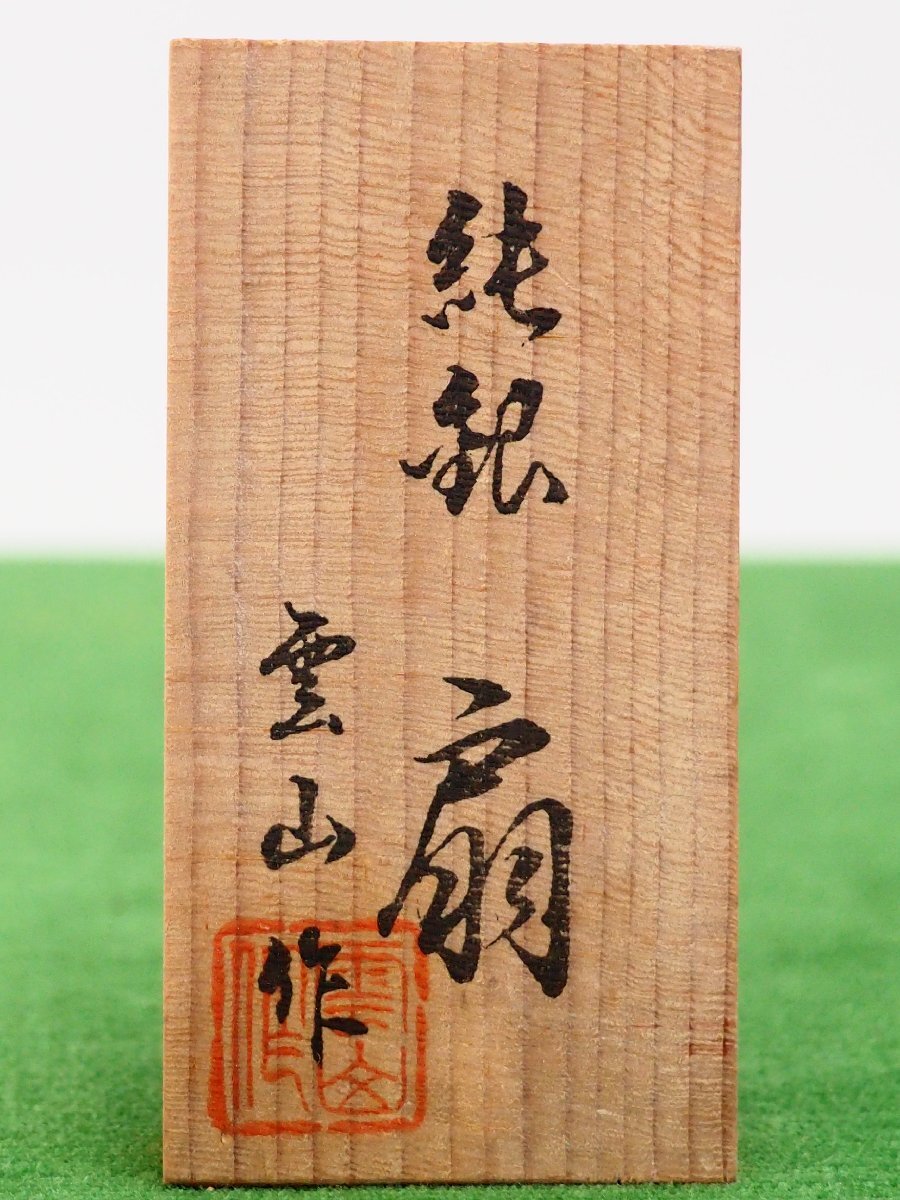 純銀 扇
雲山作